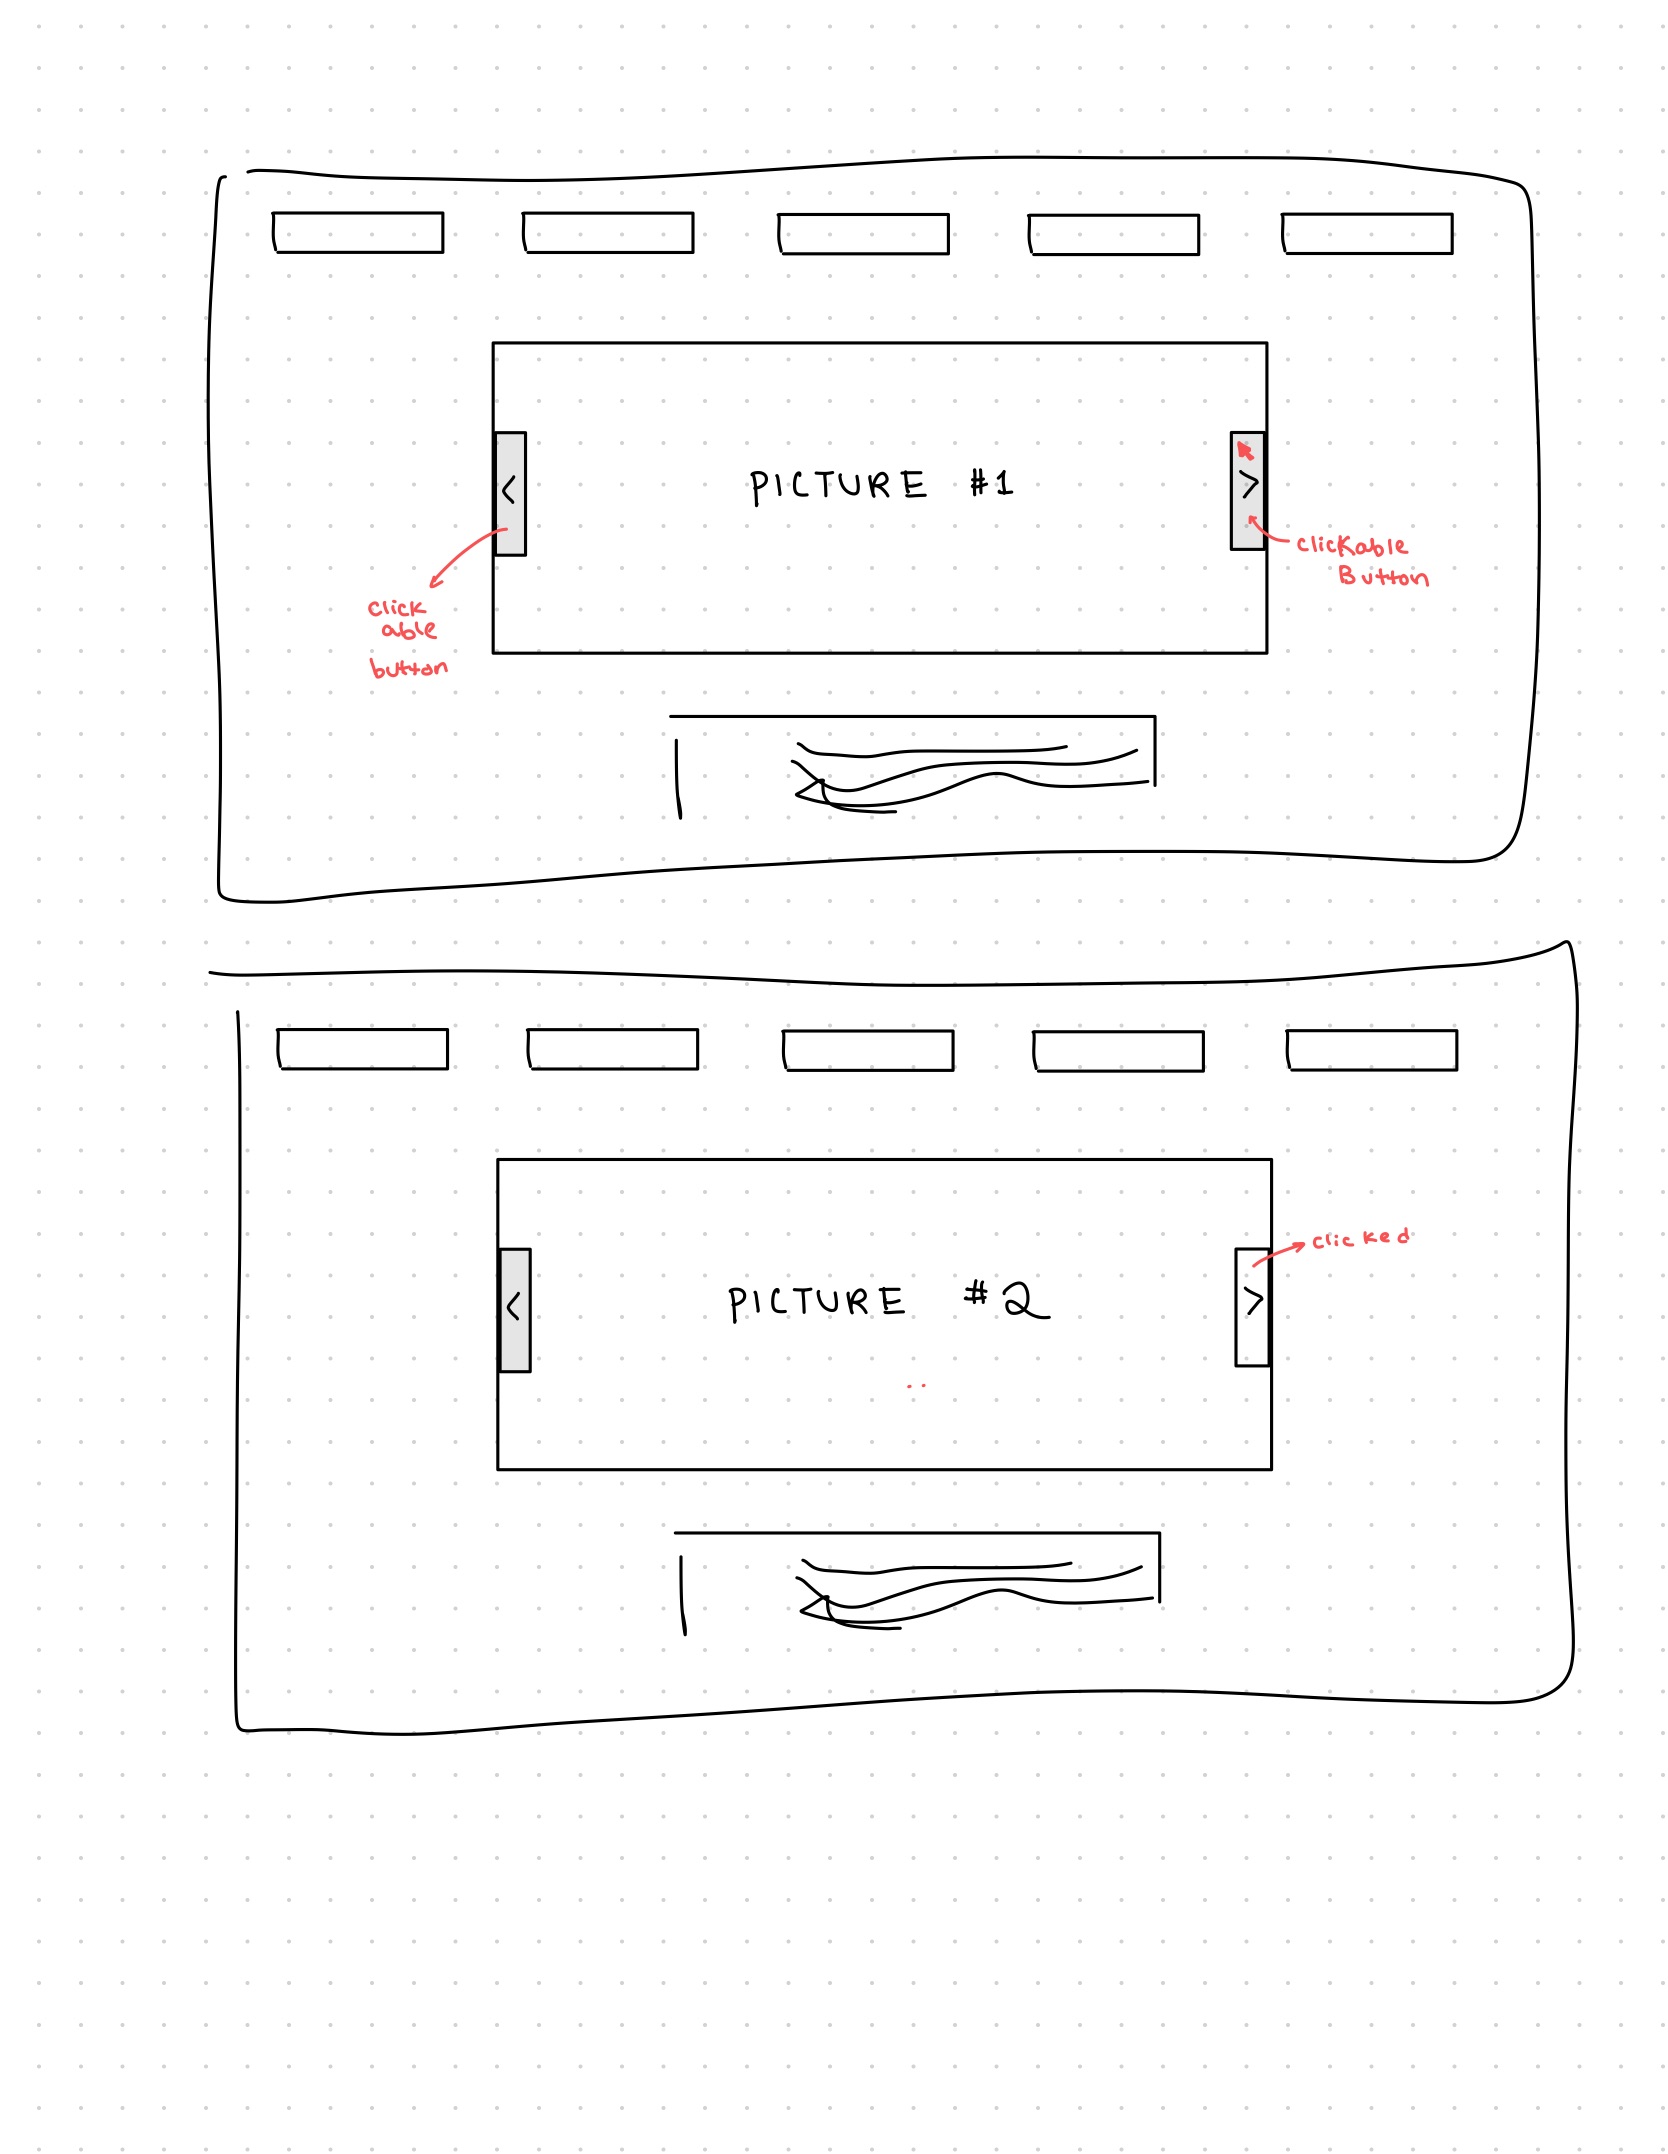 <
PICTURE #1
>
clickable
Button
click
able
button
<
PICTURE #2
>
clicked